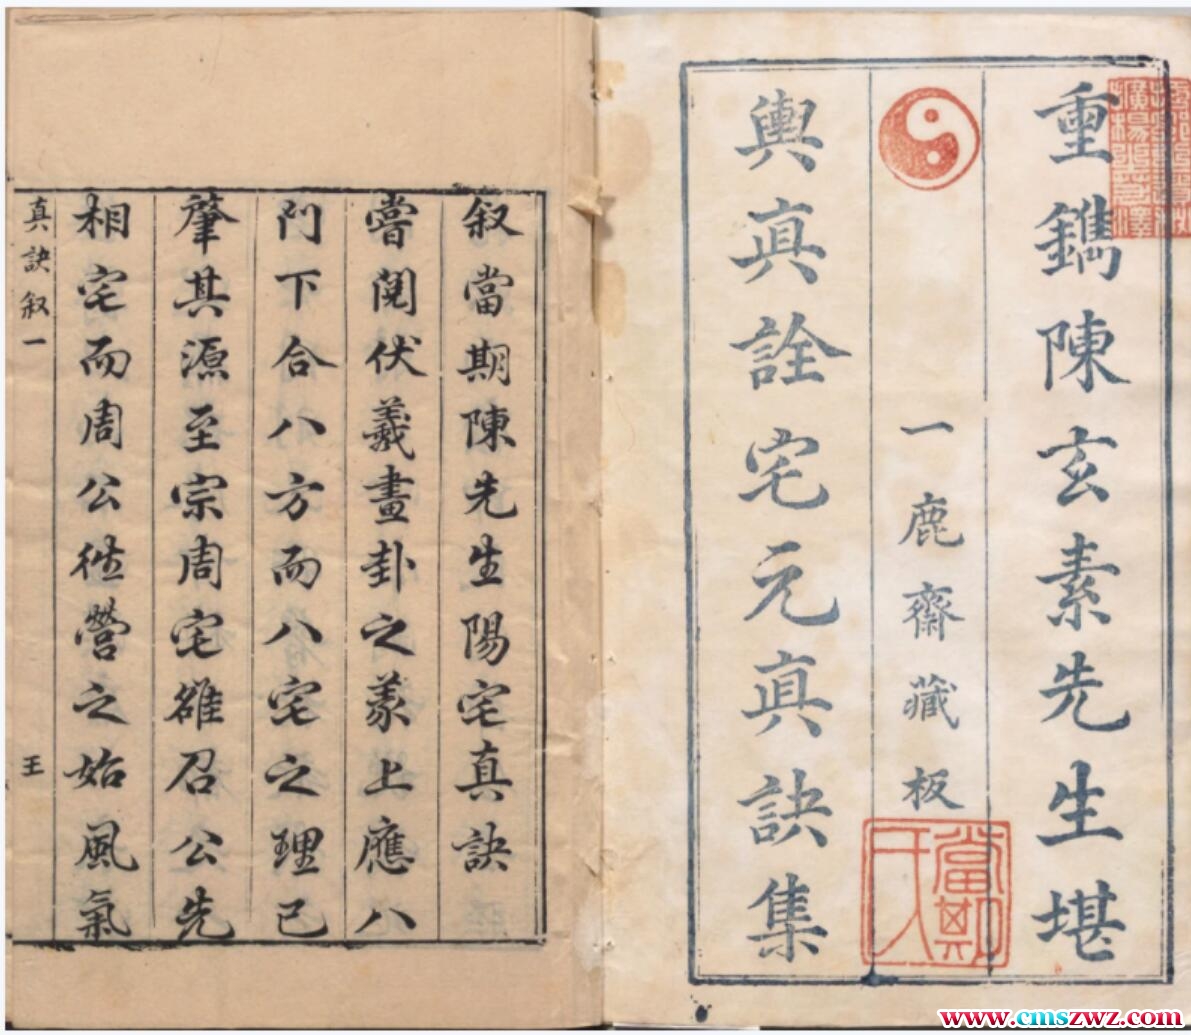 重鐫陳玄素先生堪
一鹿齋藏板
輿真詮宅元真訣集
當期
氏人
叙當期陳先生陽宅真訣
嘗閱伏羲畫卦之篆上應八
門下合八方而八宅之理已
肇其源至宗周宅雒召公先
相宅而周公徃營之始風氣
真訣叙一
王
www.cmszwz.com